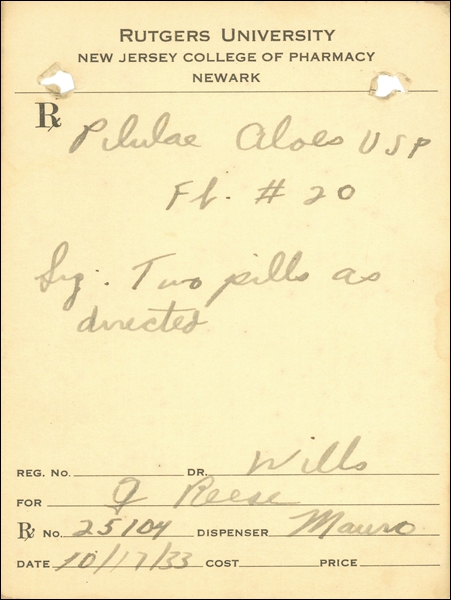 RUTGERS UNIVERSITY
NEW JERSEY COLLEGE OF PHARMACY
NEWARK
℞ Pilulae Aloes USP
Ft. # 20
Sig. Two pills as
directed
REG. NO. DR. Wills
FOR G Reese
℞ NO. 25104 DISPENSER Mauro
DATE 10/17/33 COST PRICE